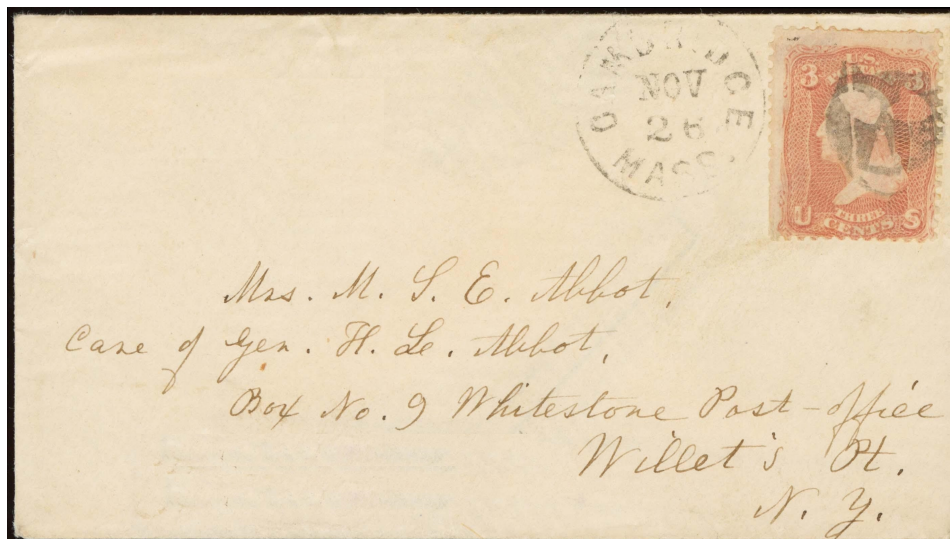 CAMBRIDGE
NOV
26
MASS.
3 U.S. 3
U THREE S
CENTS
Mrs. M. S. E. Abbot,
Care of Gen. H. L. Abbot,
Box No. 9 Whitestone Post-office
Willet's Pt.
N. Y.